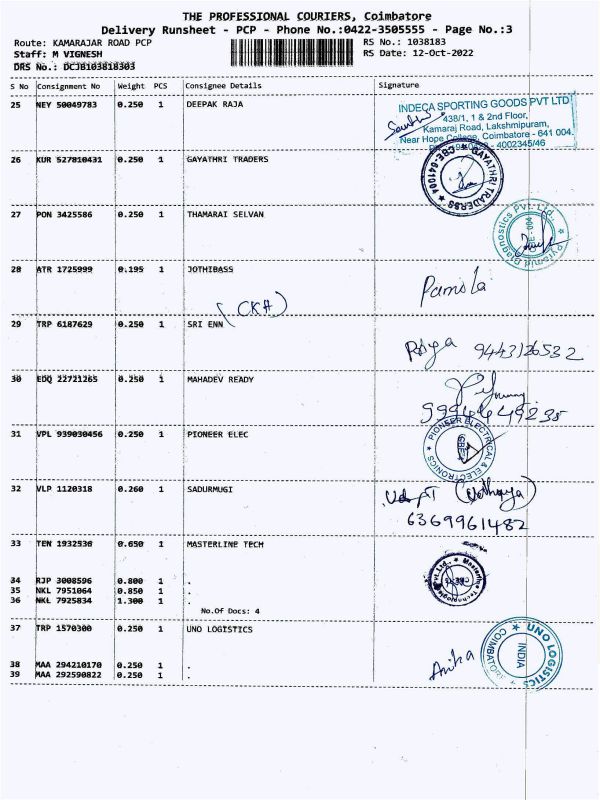 THE PROFESSIONAL COURIERS, Coimbatore
Delivery Runsheet - PCP - Phone No.:0422-3505555 - Page No.:3
Route: KAMARAJAR ROAD PCP RS No.: 1038183
Staff: M VIGNESH RS Date: 12-Oct-2022
DRS No.: DCJB103818303
S No Consignment No Weight PCS Consignee Details Signature
25 NEY 50049783 0.250 1 DEEPAK RAJA
INDECA SPORTING GOODS PVT LTD
438/1, 1 & 2nd Floor,
Kamaraj Road, Lakshmipuram,
Near Hope College, Coimbatore - 641 004.
4002345/46
26 KUR 527810431 0.250 1 GAYATHRI TRADERS
GAYATHRI TRADERSS CBE-641004
27 PON 3425586 0.250 1 THAMARAI SELVAN
Pyramid Diagnostics Pvt Ltd.,
28 ATR 1725999 0.195 1 JOTHIBASS
Pamila
(CKA)
29 TRP 6187629 0.250 1 SRI ENN
Priya 9443126532
30 EDQ 22721265 0.250 1 MAHADEV READY
31 VPL 939030456 0.250 1 PIONEER ELEC
PIONEER ELECTRICAL & ELECTRONICS
CBE-4
32 VLP 1120318 0.260 1 SADURMUGI
6369961482
33 TEN 1932536 0.650 1 MASTERLINE TECH
Masterline Technologies Pvt Ltd.,
34 RJP 3008596 0.800 1 .
35 NKL 7951064 0.850 1 .
36 NKL 7925834 1.300 1 .
No.Of Docs: 4
37 TRP 1570300 0.250 1 UNO LOGISTICS
UNO LOGISTICS COIMBATORE
INDIA
Anika
38 MAA 294210170 0.250 1 .
39 MAA 292590822 0.250 1 .